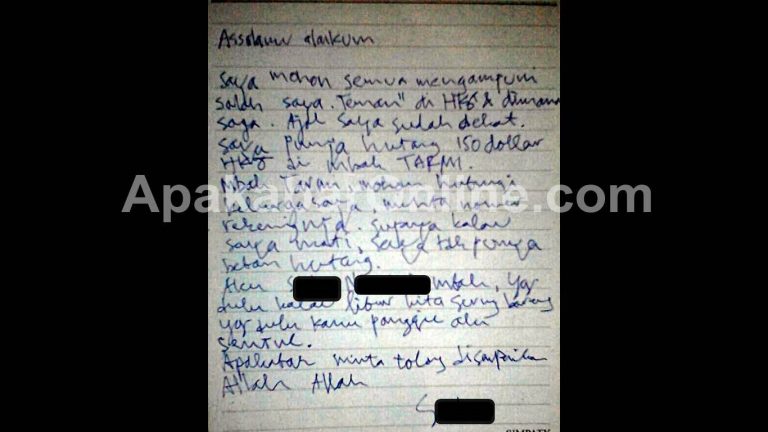 Assalamu alaikum
Saya mohon semua mengampuni
salah saya. Teman" di HK & dimana
saja. Ajal saya sudah dekat.
Saya punya hutang 150 dollar
HK di mbah TARMI.
Mbah Tarmi, mohon hubungi
keluarga saya, minta nomer
rekeningnya. supaya kalau
saya mati, saya tak punya
beban hutang.
Aku mbah, yg
dulu kalau libur kita sering bareng
yg dulu kamu panggil aku
sentul.
Apakabar minta tolog disampaikan
Allah Allah
ApakabarOnline.com
SIMPATY